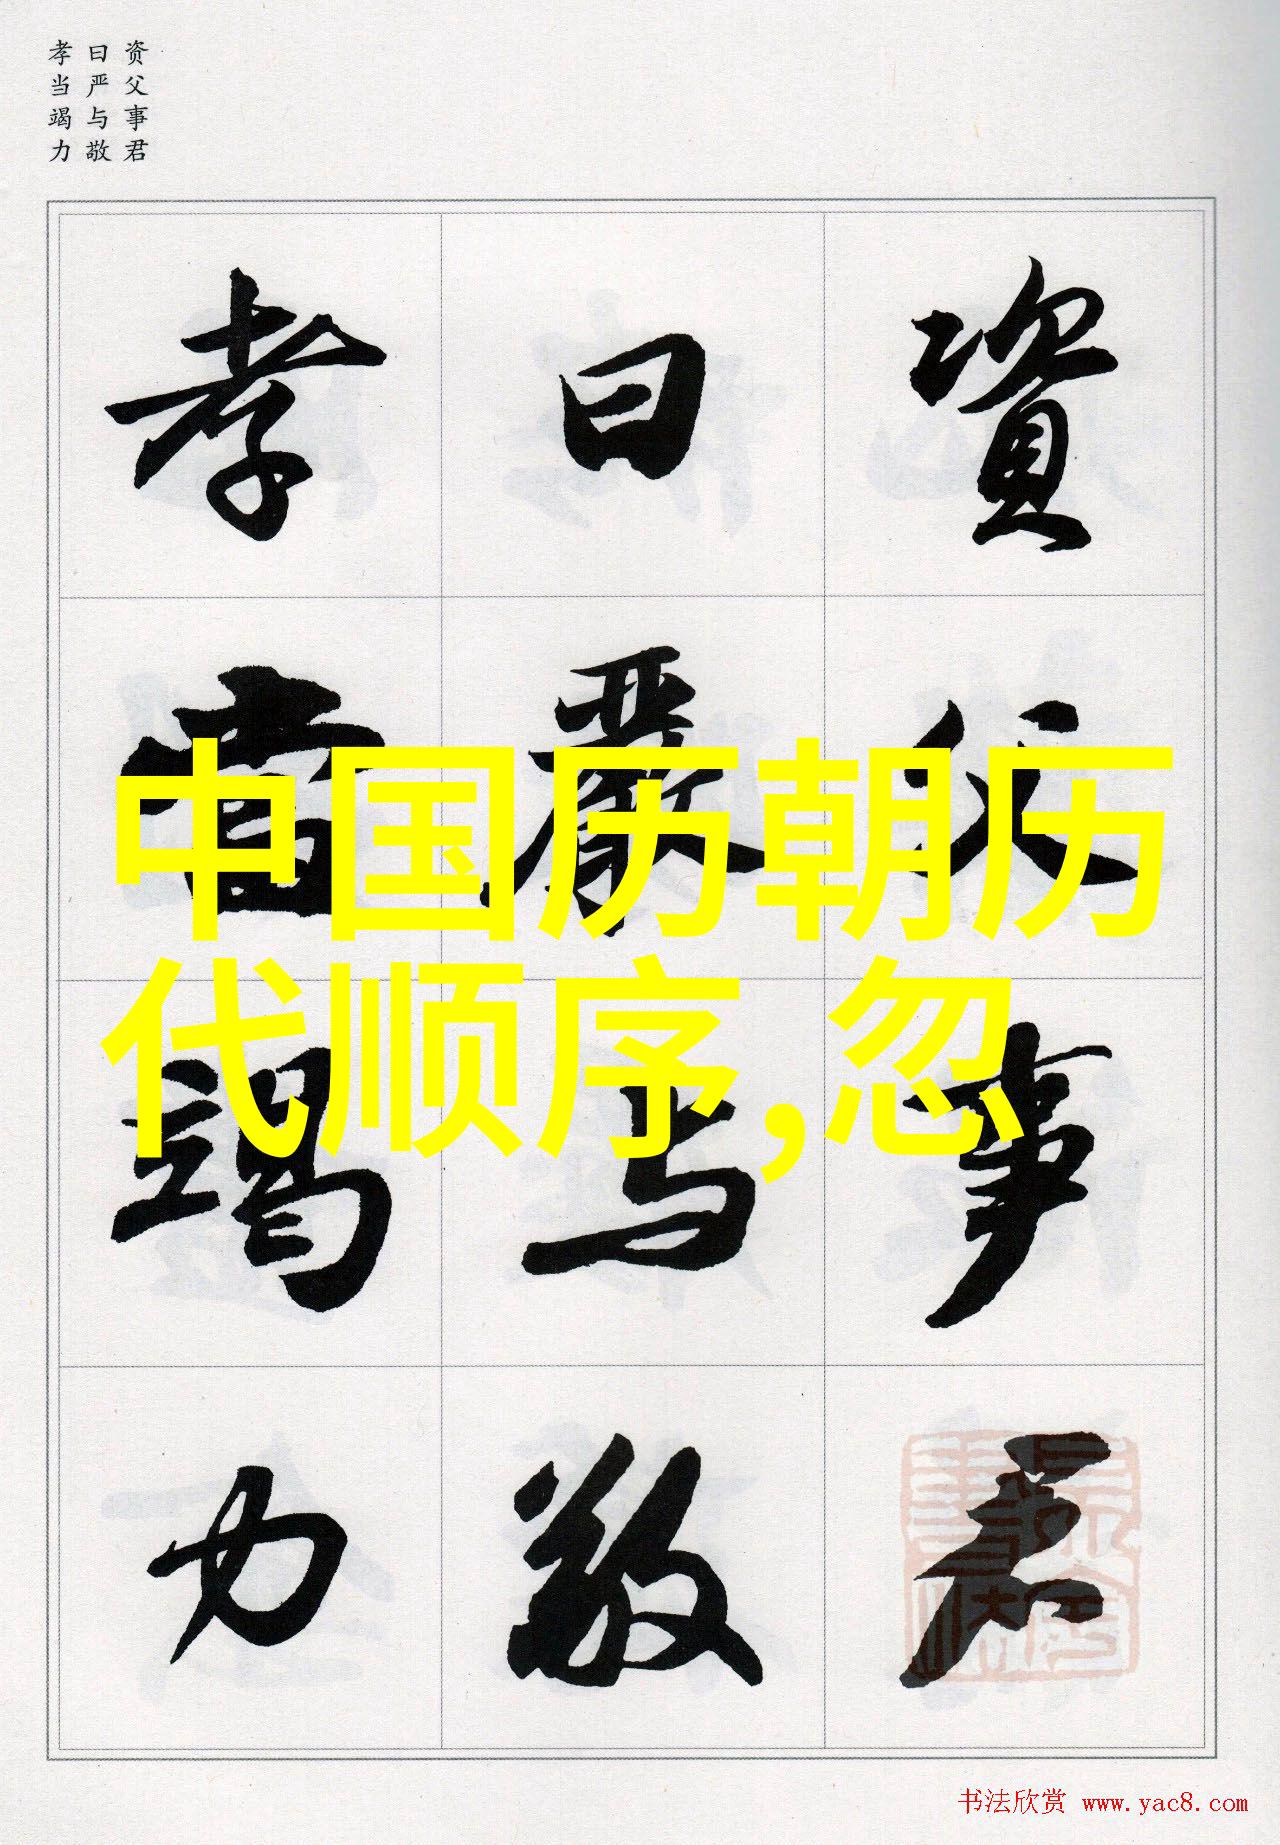 资父事君
曰严与敬
孝当竭力
資父事君
曰嚴与敬
孝當竭力
中国历朝历
代顺序,忽
书法欣赏 www.yac8.com